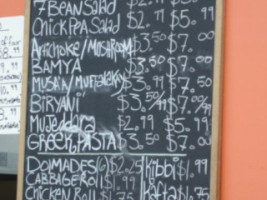 7 Bean Salad $2.99 $5.99
Chick Pea Salad $2 $5.99
Artichoke/Mushroom $3.50 $7.00
Bamya $3.50 $7.00
$3.99 $7.50
Biryani $3.50 $7.
Mujeddara $2.99 $5.99
Greek Pasta $3.50 $7.00
Dolmades (6) $2.25 Kibbi $1.99
Cabbage Roll $1.99 Kafta
Chicken Roll $1.75 .75